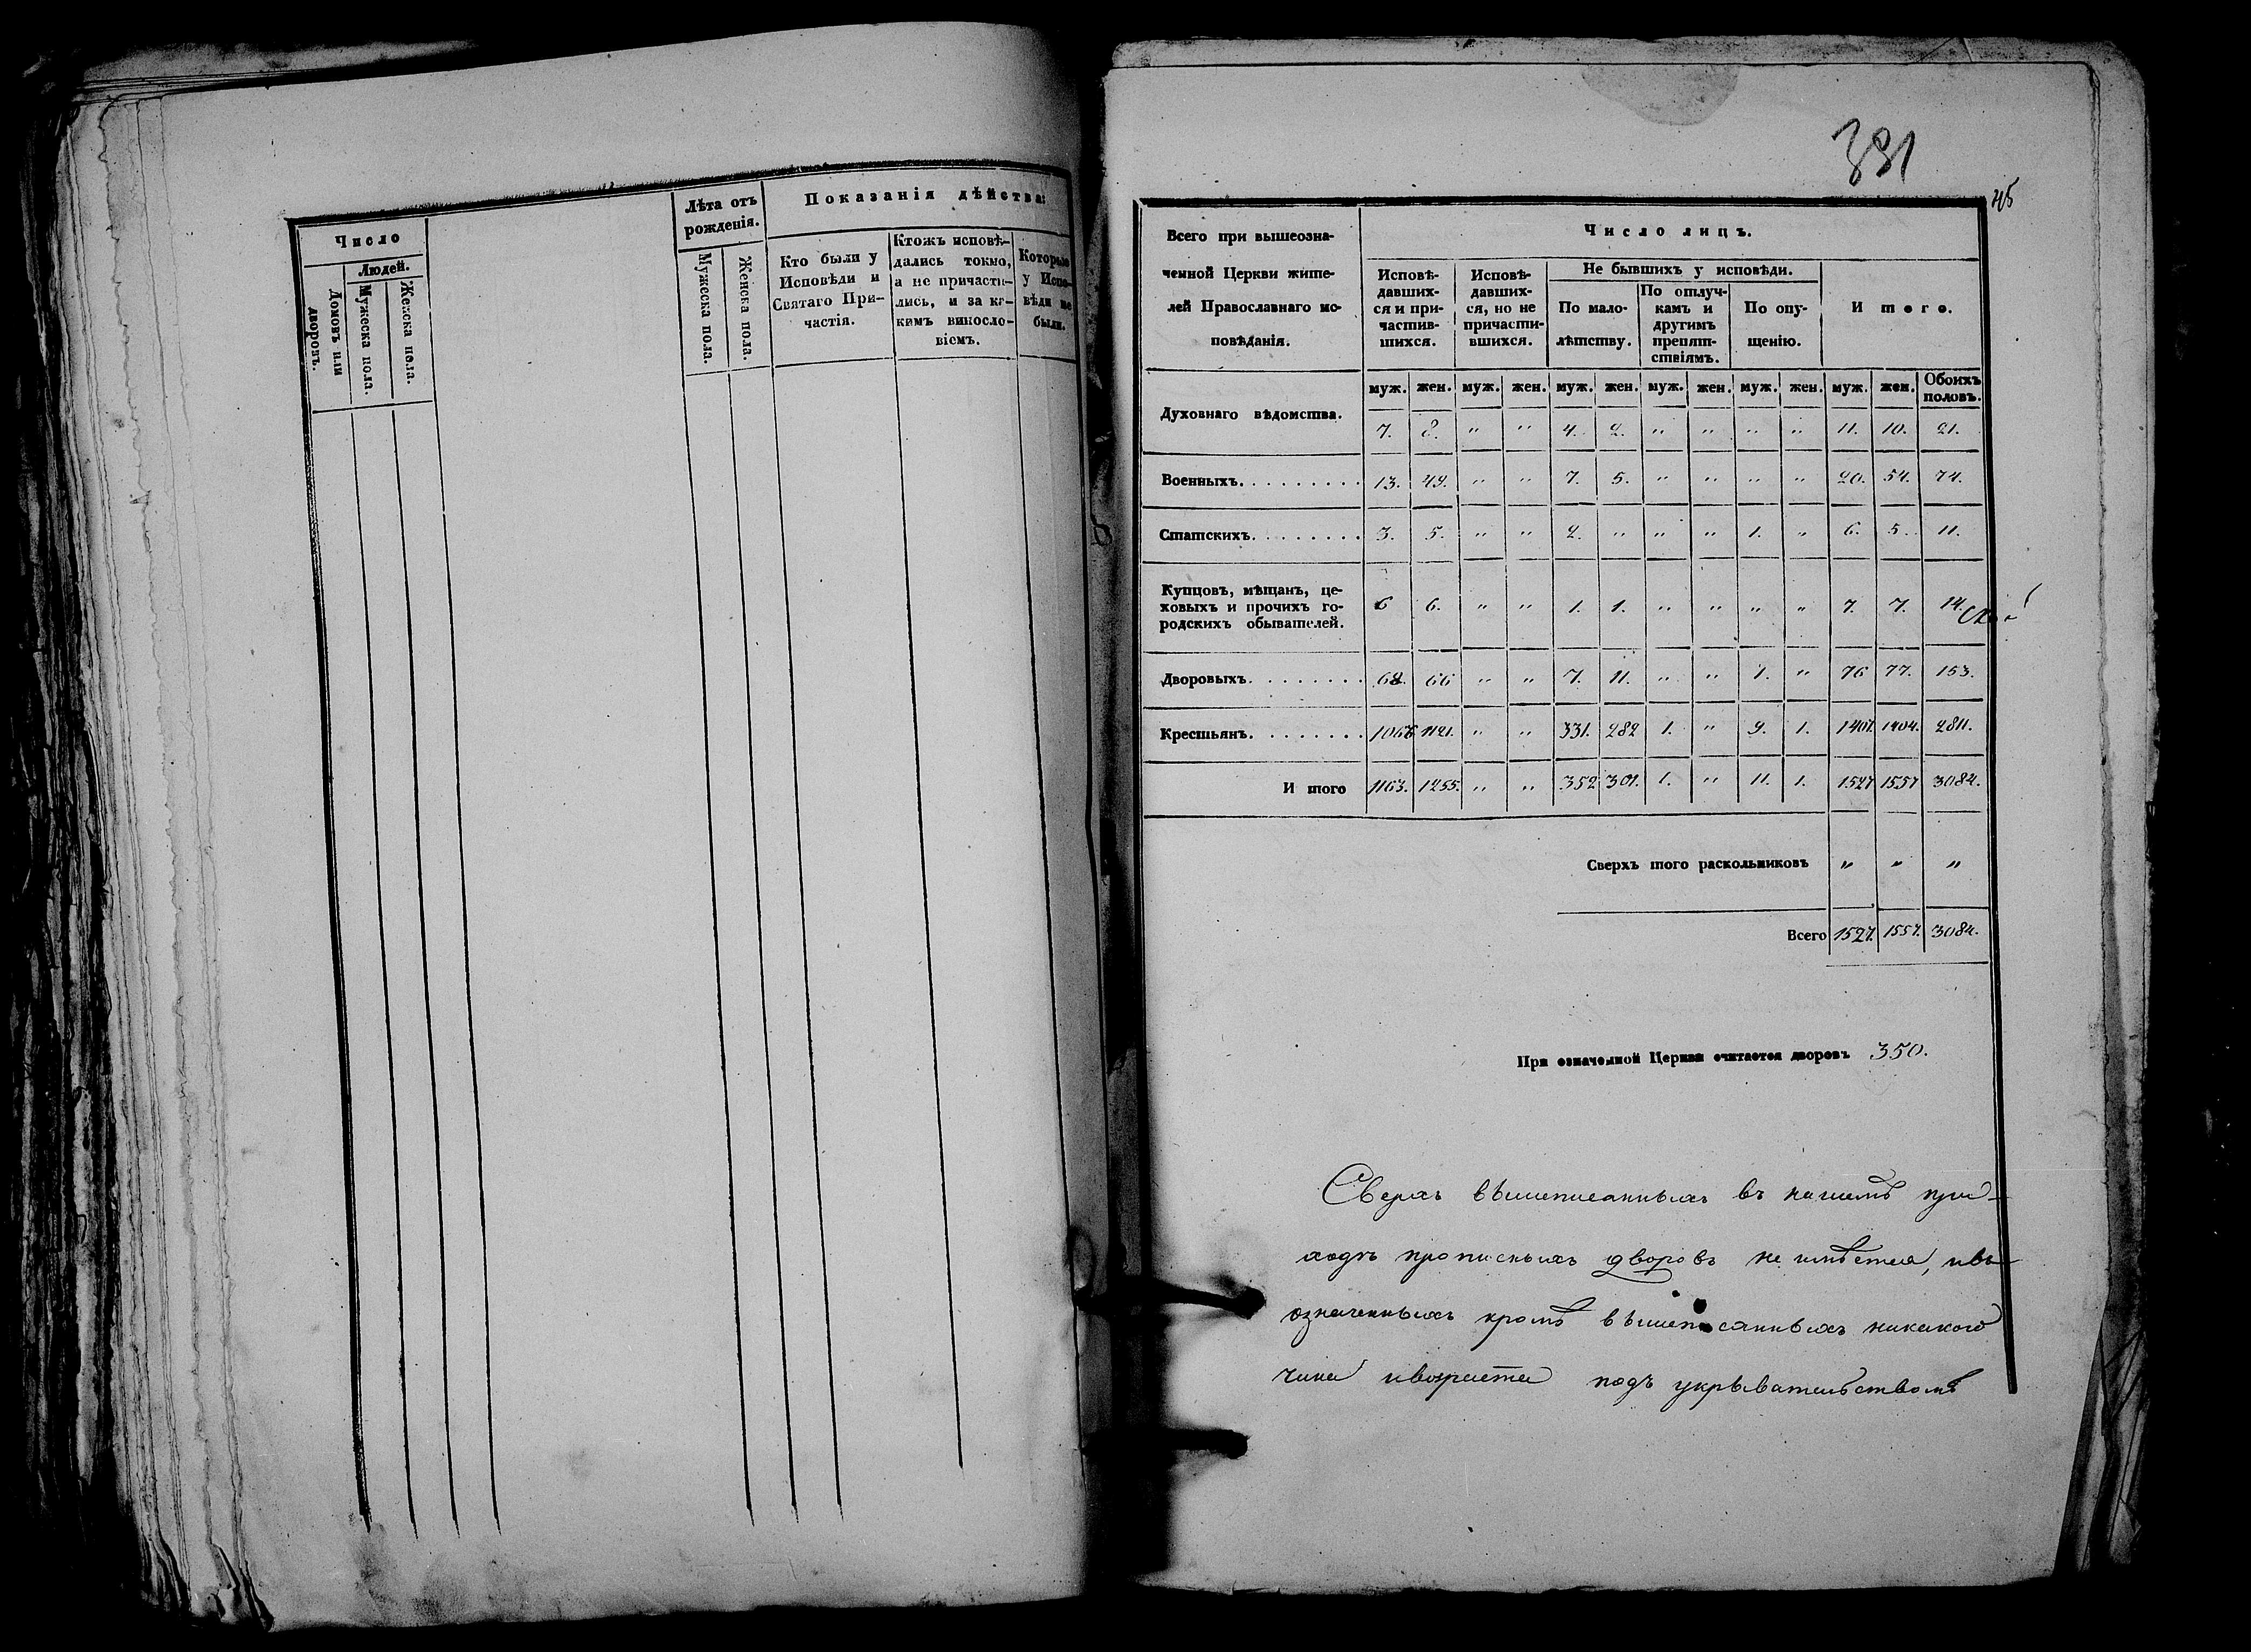 Число
Людей.
Домовъ или дворовъ.
Мужеска пола.
Женска пола.
Лѣта отъ
рожденія.
Мужеска пола.
Женска пола.
Показанія дѣйства:
Кто были у
Исповѣди и
Святаго При-
частія.
Ктожъ исповѣ-
дались токмо,
а не причасти-
лись, и за ка-
кимъ винosло-
віемъ.
Которые
у Испо-
вѣди не
были.
381
45
Всего при вышеозна-
ченной Церкви жите-
лей Православнаго ис-
повѣданія.
Число лицъ.
Исповѣ-
давших-
ся и при-
частив-
шихся.
Исповѣ-
давших-
ся, но не
причасти-
вшихся.
Не бывшихъ у исповѣди.
По мало-
лѣтству.
По отлуч-
камъ и
другимъ
препят-
ствіямъ.
По опу-
щенію.
И того.
муж. жен. муж. жен. муж. жен. муж. жен. муж. жен. муж. жен. Обоихъ половъ.
Духовнаго вѣдомства. 7. 8. " " 4. 2. " " " " 11. 10. 21.
Военныхъ. 13. 49. " " 7. 5. " " " " 20. 54. 74.
Статскихъ. 3. 5. " " 2. " " " 1. " 6. 5. 11.
Купцовъ, мѣщанъ, це-
ховыхъ и прочихъ го-
родскихъ обывателей. 6 6. " " 1. 1. " " " " 7. 7. 14.
Дворовыхъ. 68. 66 " " 7. 11. " " 1. " 76 77. 153.
Крестьянъ. 1066 1121. " " 331. 282 1. " 9. 1. 1407. 1404. 2811.
И того 1163. 1255. " " 352 301. 1. " 11. 1. 1527 1557 3084.
Сверхъ того раскольниковъ " " "
Всего 1527. 1557. 3084.
При означенной Церкви считается дворовъ 350.
Сверхъ вышеписанныхъ въ нашемъ при-
ходѣ прописныхъ дворовъ не имѣется, и въ
означенныхъ кромѣ вышеписанныхъ никакого
чина и возраста подъ укрывательствомъ